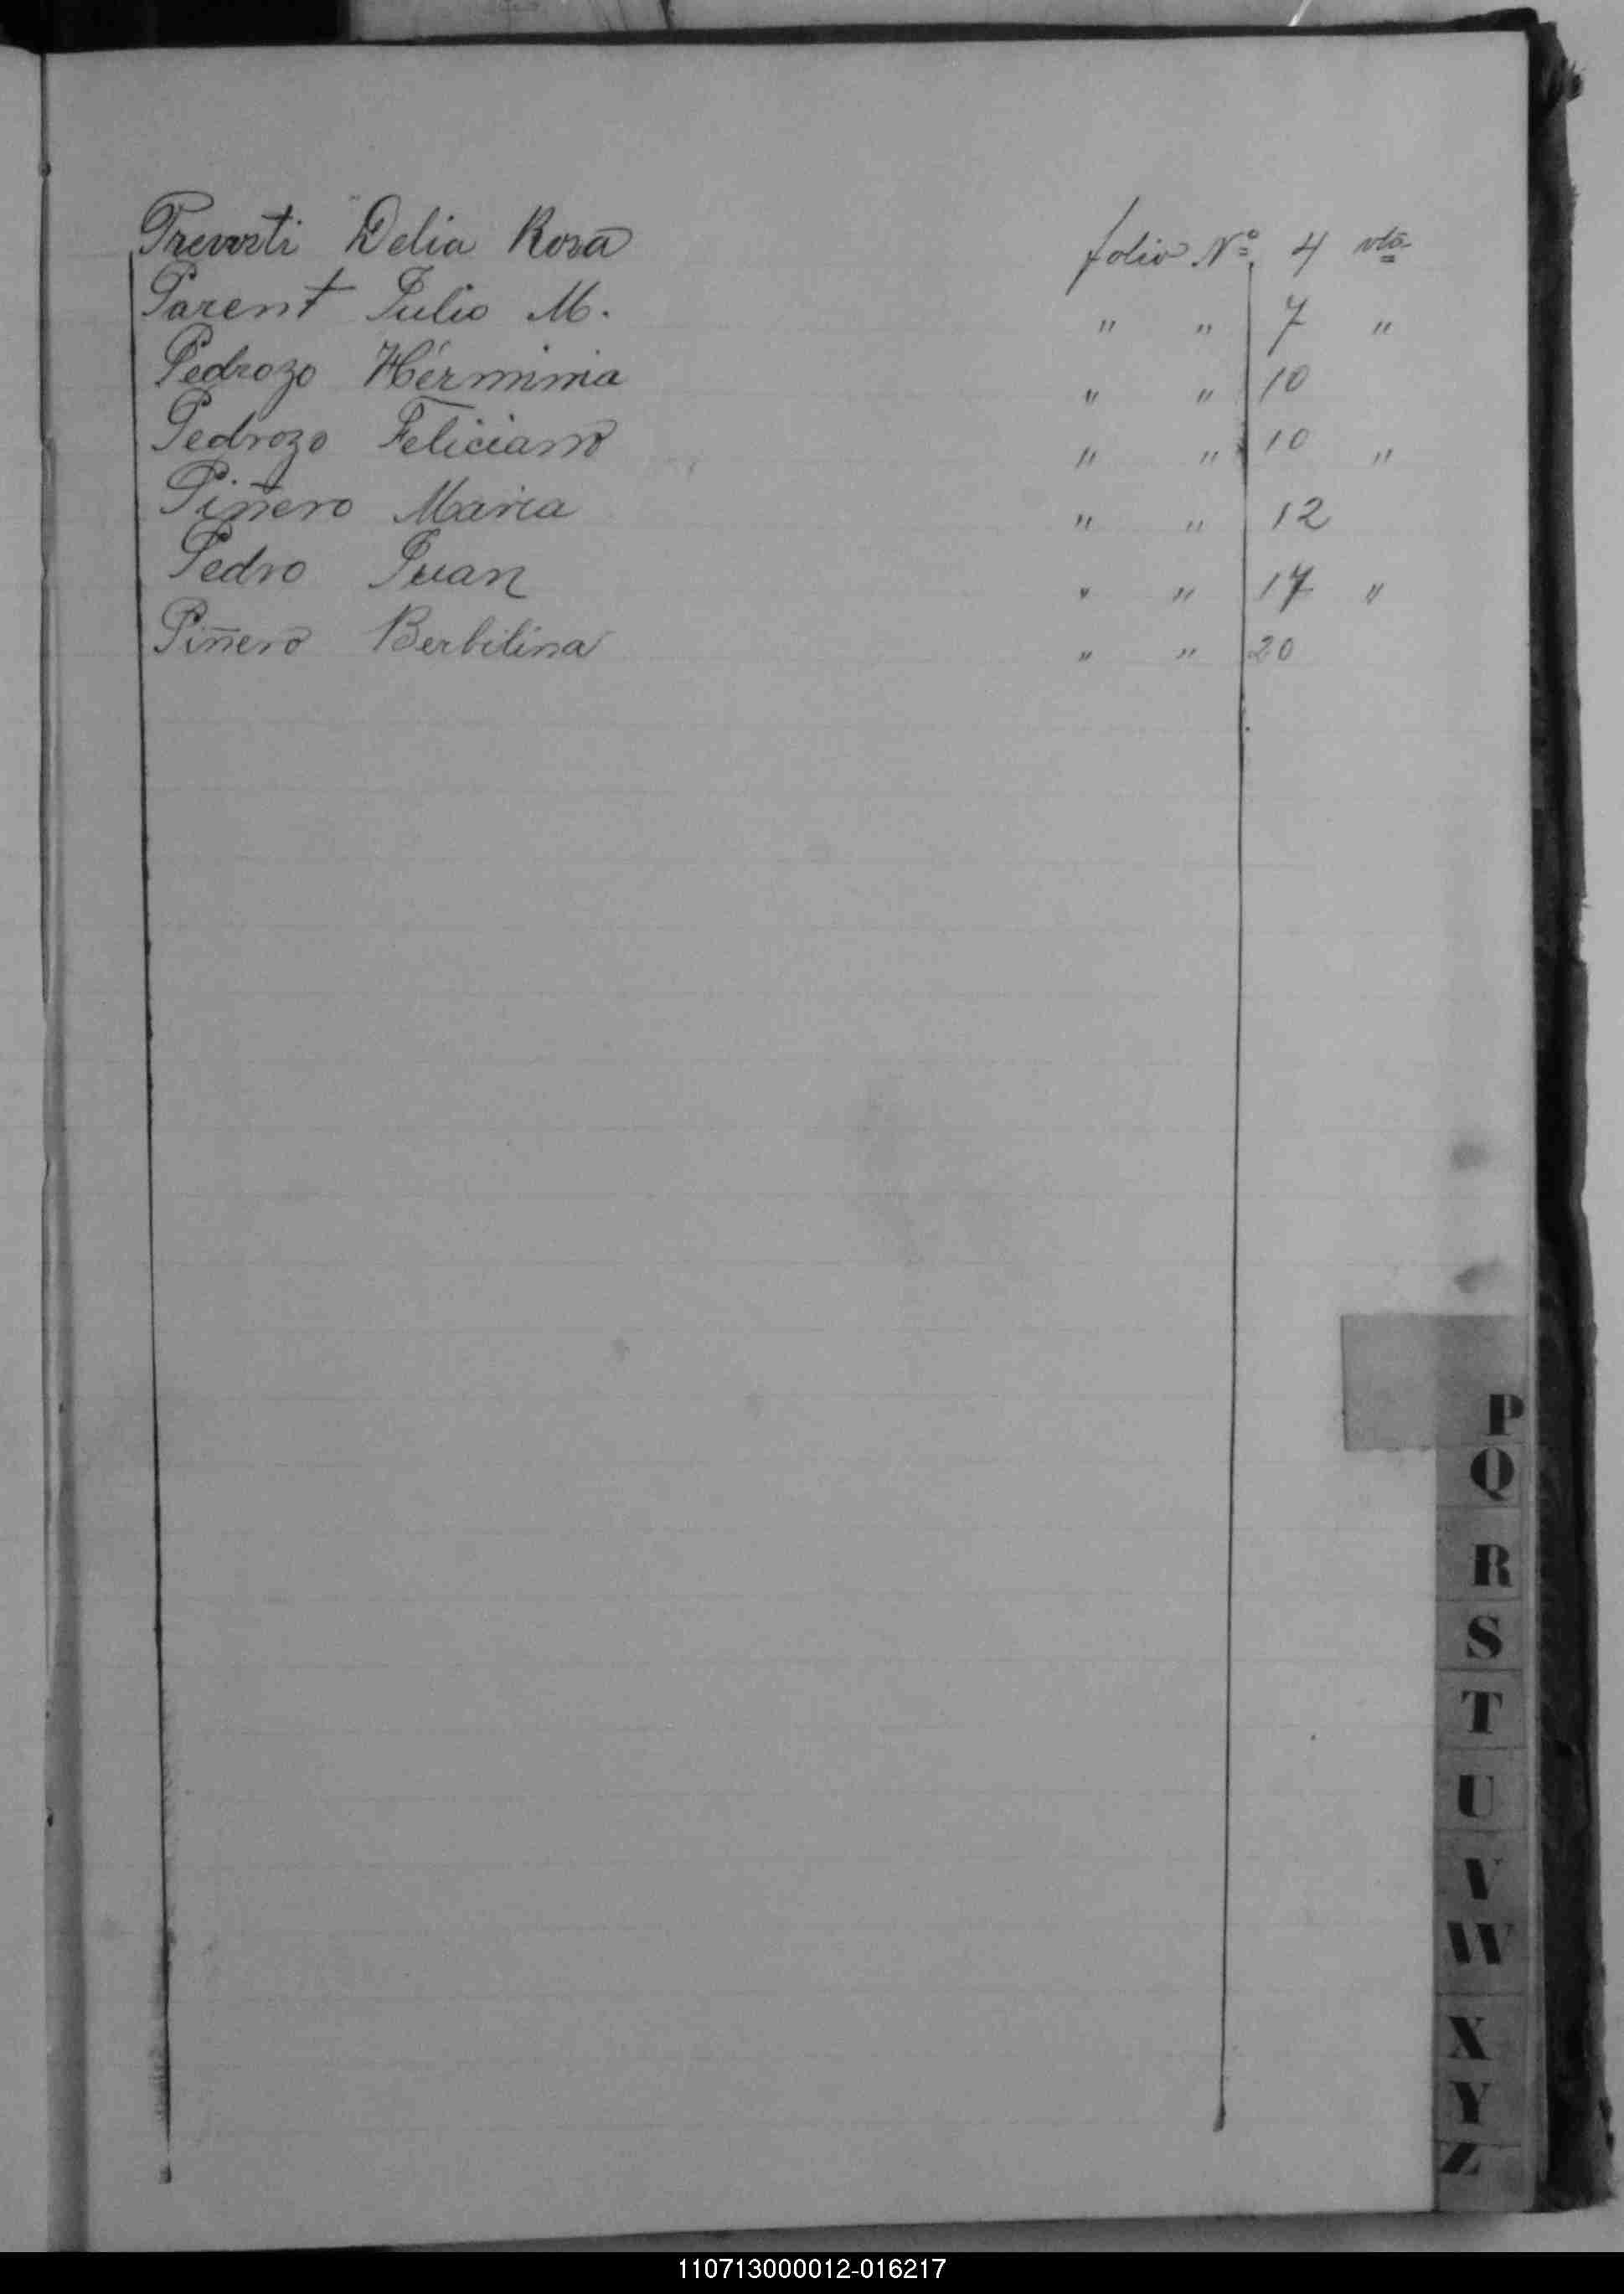 Prevosti Delia Rosa folio Nº 4 vta
Parent Julio M. " " 7 "
Pedrozo Herminia " " 10
Pedrozo Feliciano " " 10 "
Piñero Maria " " 12
Pedro Juan " " 17 "
Piñero Berbilina " " 20
P
Q
R
S
T
U
V
W
X
Y
Z
110713000012-016217